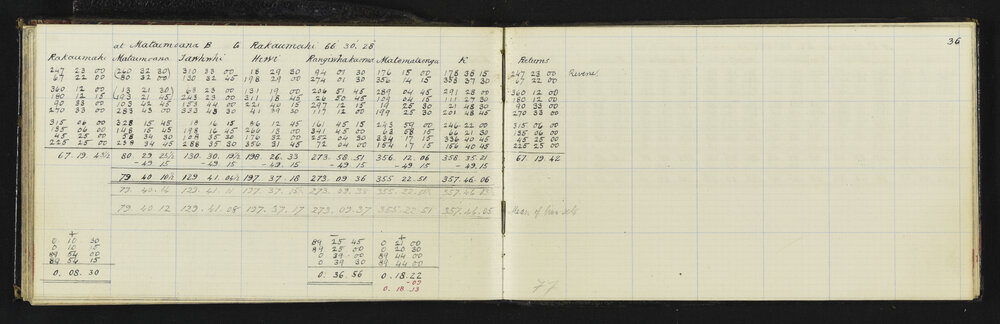 36
at Mataimoana B to Rakaumahi 66° 30' 28"
Rakaumahi Mataimoana Tawhiwhi Hiwi Rangiwhakaoma Matamatonga K Returns
247 23 00 (260 32 30) 310 33 00 18 29 30 94 01 30 176 15 00 178 38 15 247 23 00 Reverse
67 22 00 (80 32 30) 130 32 45 198 29 00 274 01 30 356 14 15 358 37 30 67 22 00
360 12 00 (13 21 30) 63 23 00 131 19 00 206 51 45 289 04 45 291 28 00 360 12 00
180 12 15 (193 21 45) 243 23 00 311 18 45 26 50 45 109 04 15 111 27 30 180 12 00
90 33 00 103 42 45 153 44 00 221 40 15 297 12 15 19 25 30 21 48 30 90 33 00
270 33 00 283 43 00 333 43 30 41 39 30 117 12 00 199 25 30 201 48 45 270 33 00
315 06 00 328 15 45 18 16 15 86 12 45 161 45 15 243 59 00 246 22 00 315 06 00
135 06 00 148 15 45 198 16 45 266 13 00 341 45 00 63 58 15 66 21 30 135 06 00
45 25 00 58 34 30 108 35 30 176 32 00 252 04 30 334 17 15 336 40 45 45 25 00
225 25 00 238 34 45 288 35 30 356 31 45 72 04 00 154 17 15 156 40 45 225 25 00
67. 19. 43½ 80 29 25½ 130. 30. 19½ 198 26. 33 273. 58. 51 356. 12. 06 358 35. 21 67. 19. 42
- 49. 15 - 49. 15 - 49. 15 - 49. 15 - 49. 15 - 49. 15
79 40 10½ 129. 41. 04½ 197. 37. 18 273. 09. 36 355. 22. 51 357. 46. 06
79. 40. 14 129. 41. 11 197. 37. 15½ 273. 09. 38 355. 22. 357. 46. 
79. 40. 12 129. 41. 08 197. 37. 17 273. 09. 37 355. 22. 51 357. 46. 05 Mean of two sets
+ - +
0. 10. 30 89 25 45 0 21 00
0 10 15 89 25 00 0 20 30
89 54 00 0 39 00 89 44 00
89 54 15 0 39 30 89 44 00
0. 08. 30 0. 36. 56 0. 18. 22
- 09
0. 18. 13
77